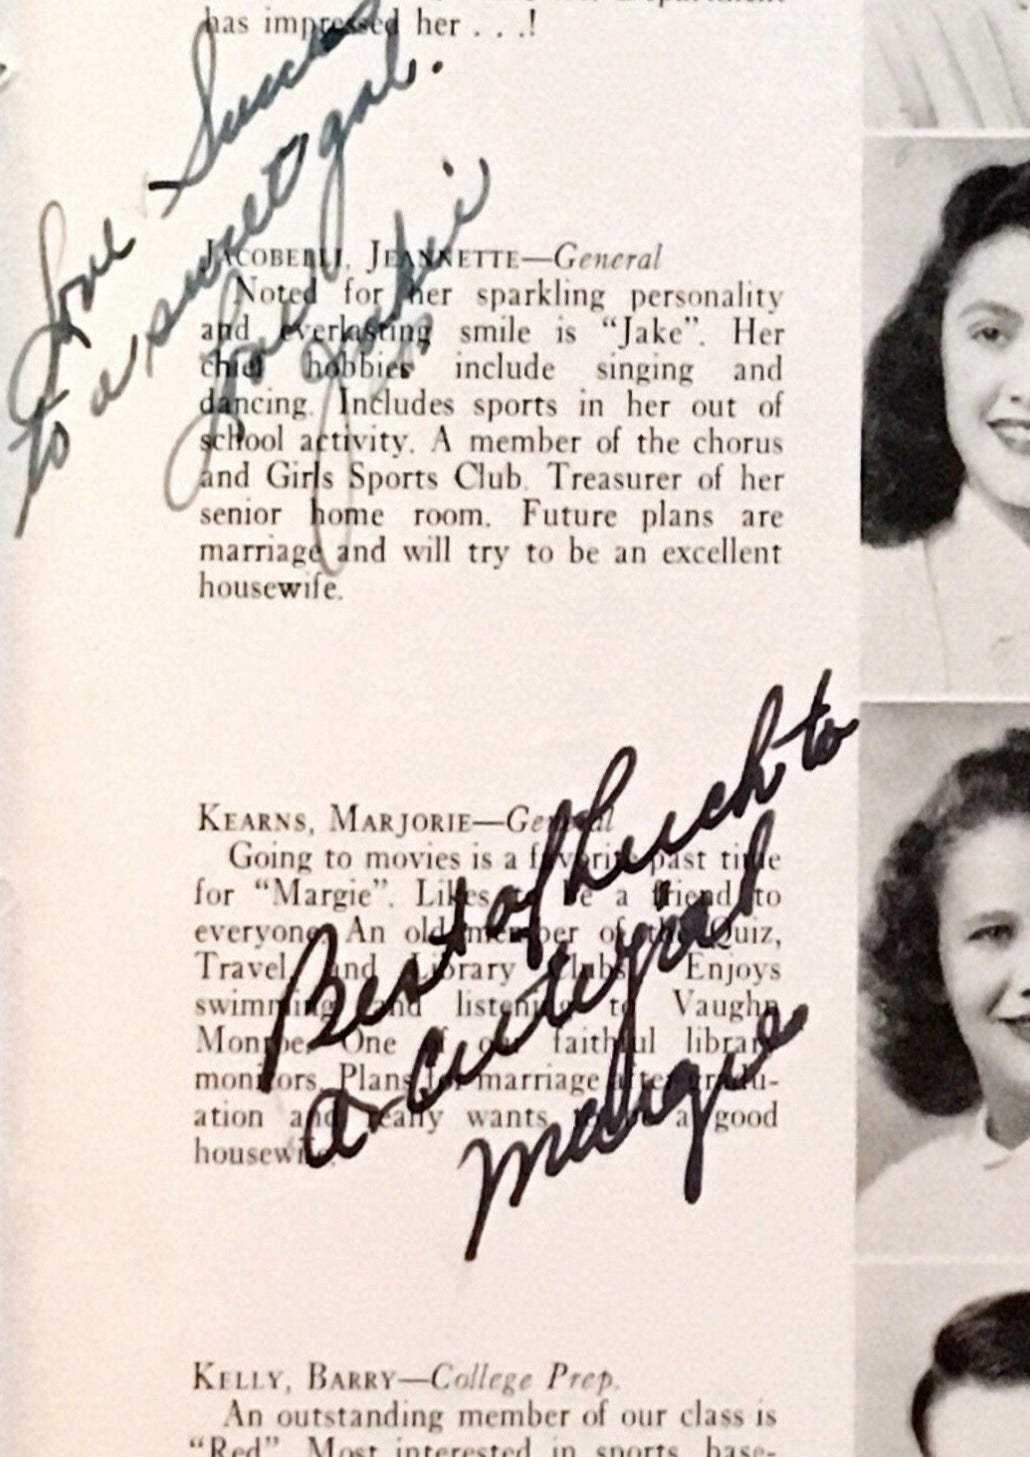 has impressed her . . .!
Love & Success
to a sweet gal.
Love
Jackie
JACOBELLI, JEANNETTE—General
Noted for her sparkling personality
and everlasting smile is “Jake”. Her
chief hobbies include singing and
dancing. Includes sports in her out of
school activity. A member of the chorus
and Girls Sports Club. Treasurer of her
senior home room. Future plans are
marriage and will try to be an excellent
housewife.
KEARNS, MARJORIE—General
Going to movies is a favorite past time
for “Margie”. Likes to be a friend to
everyone. An old member of the Quiz,
Travel, and Library Clubs. Enjoys
swimming and listening to Vaughn
Monroe. One of our faithful library
monitors. Plans for marriage after gradu-
ation and really wants to be a good
housewife.
Best of luck to
a cute gal
Margie
KELLY, BARRY—College Prep.
An outstanding member of our class is
“Red”. Most interested in sports, base-